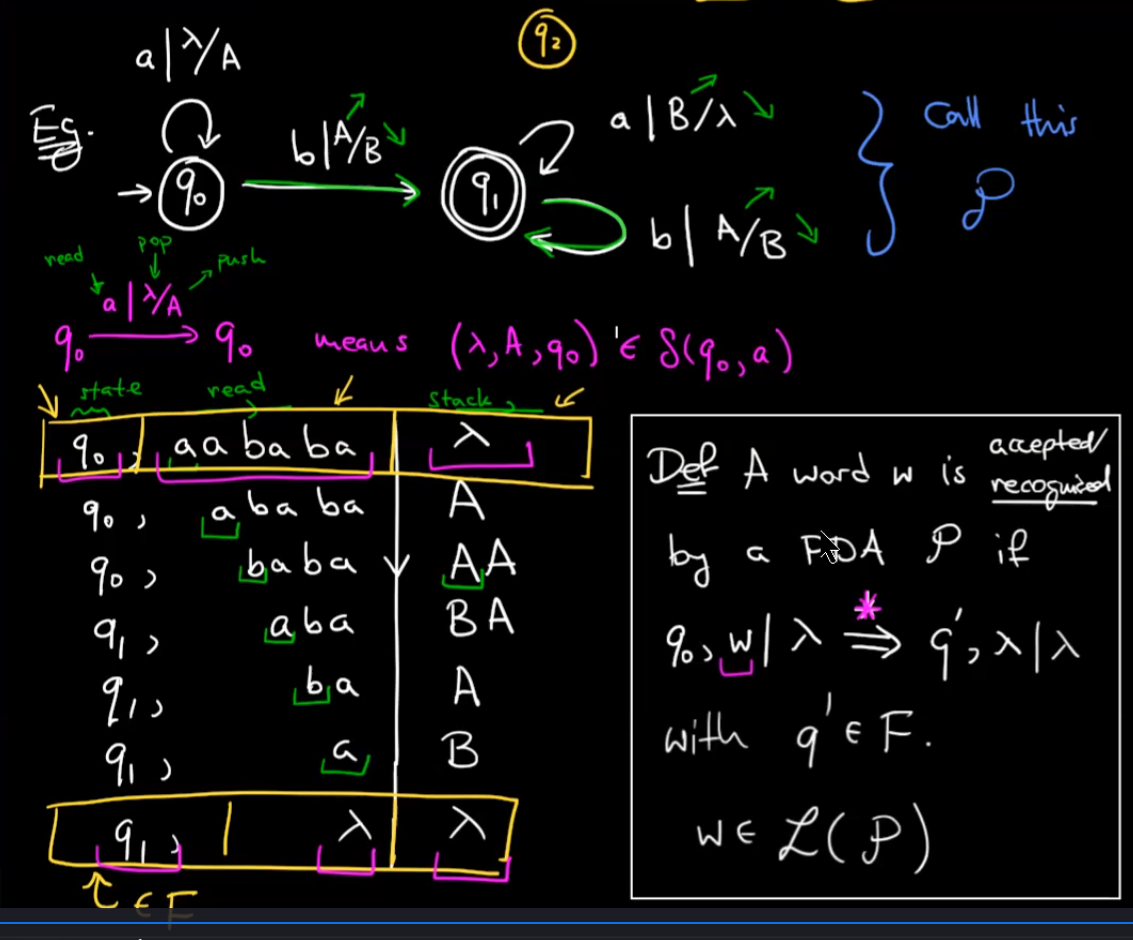 q₂
a | λ/A
Eg.
b | A/B
a | B/λ
→ q₀
q₁
b | A/B
Call this
P
read
pop
push
a | λ/A
q₀ → q₀ means (λ, A, q₀) ∈ δ(q₀, a)
state read stack
q₀, aababa λ
q₀, ababa A
q₀, baba AA
q₁, aba BA
q₁, ba A
q₁, a B
q₁, λ λ
∈ F
Def A word w is accepted/
recognized
by a PDA P if
q₀, w | λ ⇒* q', λ | λ
with q' ∈ F.
w ∈ L(P)